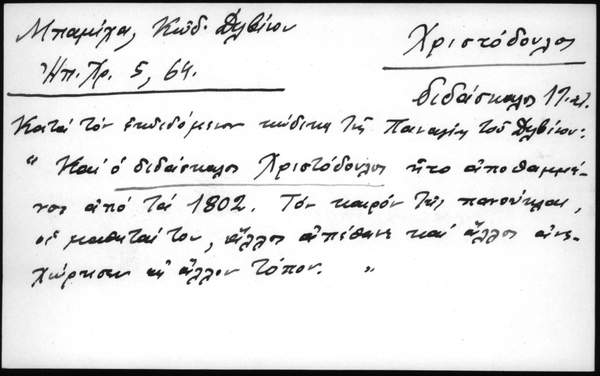 Μπαμίχα, Κώδ. Δελβίνου
Ἠπ. Χρ. 5, 64.
Χριστόδουλος
διδάσκαλος
Κατά τόν ἐκδιδόμενον κώδικα τῆς Παναγίας τοῦ Δελβίνου:
" Καί ὁ διδάσκαλος Χριστόδουλος ἦτο ἀποθαμμέ-
νος ἀπό τά 1802. Τόν καιρόν τῆς πανούκλας,
οἱ μαθηταί του, ἄλλος ἀπέθανε καί ἄλλος ἀνε-
χώρησεν εἰς ἄλλον τόπον. "